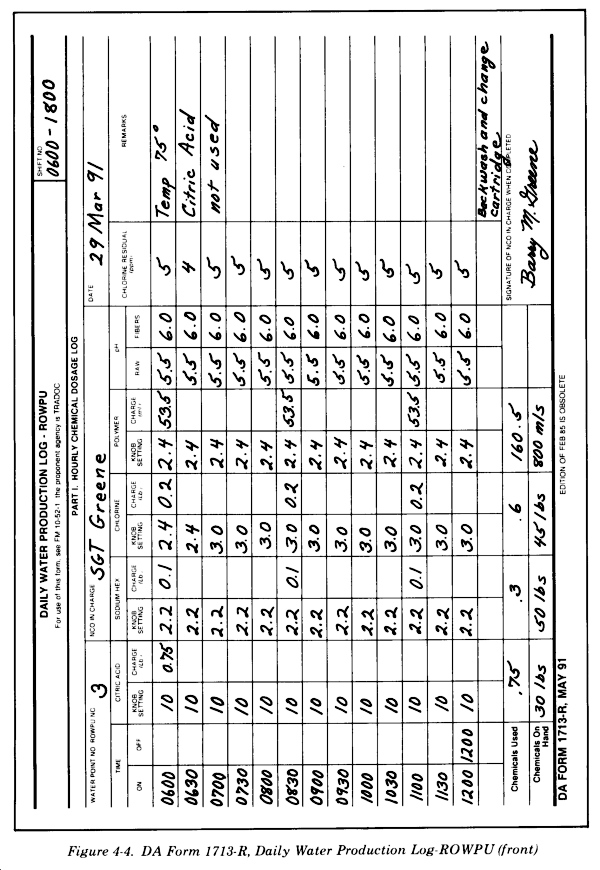 DAILY WATER PRODUCTION LOG - ROWPU
For use of this form, see FM 10-52-1 the proponent agency is TRADOC
SHIFT NO
0600 - 1800
PART I. HOURLY CHEMICAL DOSAGE LOG
WATER POINT NO ROWPU NO 3
NCO IN CHARGE SGT Greene
DATE 29 Mar 91
TIME CITRIC ACID SODIUM HEX CHLORINE POLYMER pH CHLORINE RESIDUAL (ppm) REMARKS
ON OFF KNOB SETTING CHARGE (LB) KNOB SETTING CHARGE (LB) KNOB SETTING CHARGE (LB) KNOB SETTING CHARGE RAW FIBERS
0600 10 0.75 2.2 0.1 2.4 0.2 2.4 53.5 5.5 6.0 5 Temp 75°
0630 10 2.2 2.4 2.4 5.5 6.0 4 Citric Acid
0700 10 2.2 3.0 2.4 5.5 6.0 5 not used
0730 10 2.2 3.0 2.4 5.5 6.0 5
0800 10 2.2 3.0 2.4 5.5 6.0 5
0830 10 2.2 0.1 3.0 0.2 2.4 53.5 5.5 6.0 5
0900 10 2.2 3.0 2.4 5.5 6.0 5
0930 10 2.2 3.0 2.4 5.5 6.0 5
1000 10 2.2 3.0 2.4 5.5 6.0 5
1030 10 2.2 3.0 2.4 5.5 6.0 5
1100 10 2.2 0.1 3.0 0.2 2.4 53.5 5.5 6.0 5
1130 10 2.2 3.0 2.4 5.5 6.0 5
1200 1200 10 2.2 3.0 2.4 5.5 6.0 5
Backwash and change
cartridge
Chemicals Used .75 .3 .6 160.5
SIGNATURE OF NCO IN CHARGE WHEN COMPLETED
Barry M. Greene
Chemicals On Hand 30 lbs 50 lbs 45 lbs 800 mls
DA FORM 1713-R, MAY 91
EDITION OF FEB 85 IS OBSOLETE
Figure 4-4. DA Form 1713-R, Daily Water Production Log-ROWPU (front)